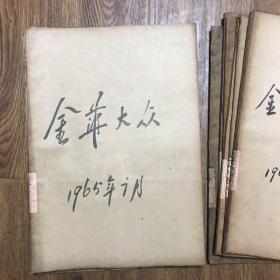 金华大众
1965年7月
金
19